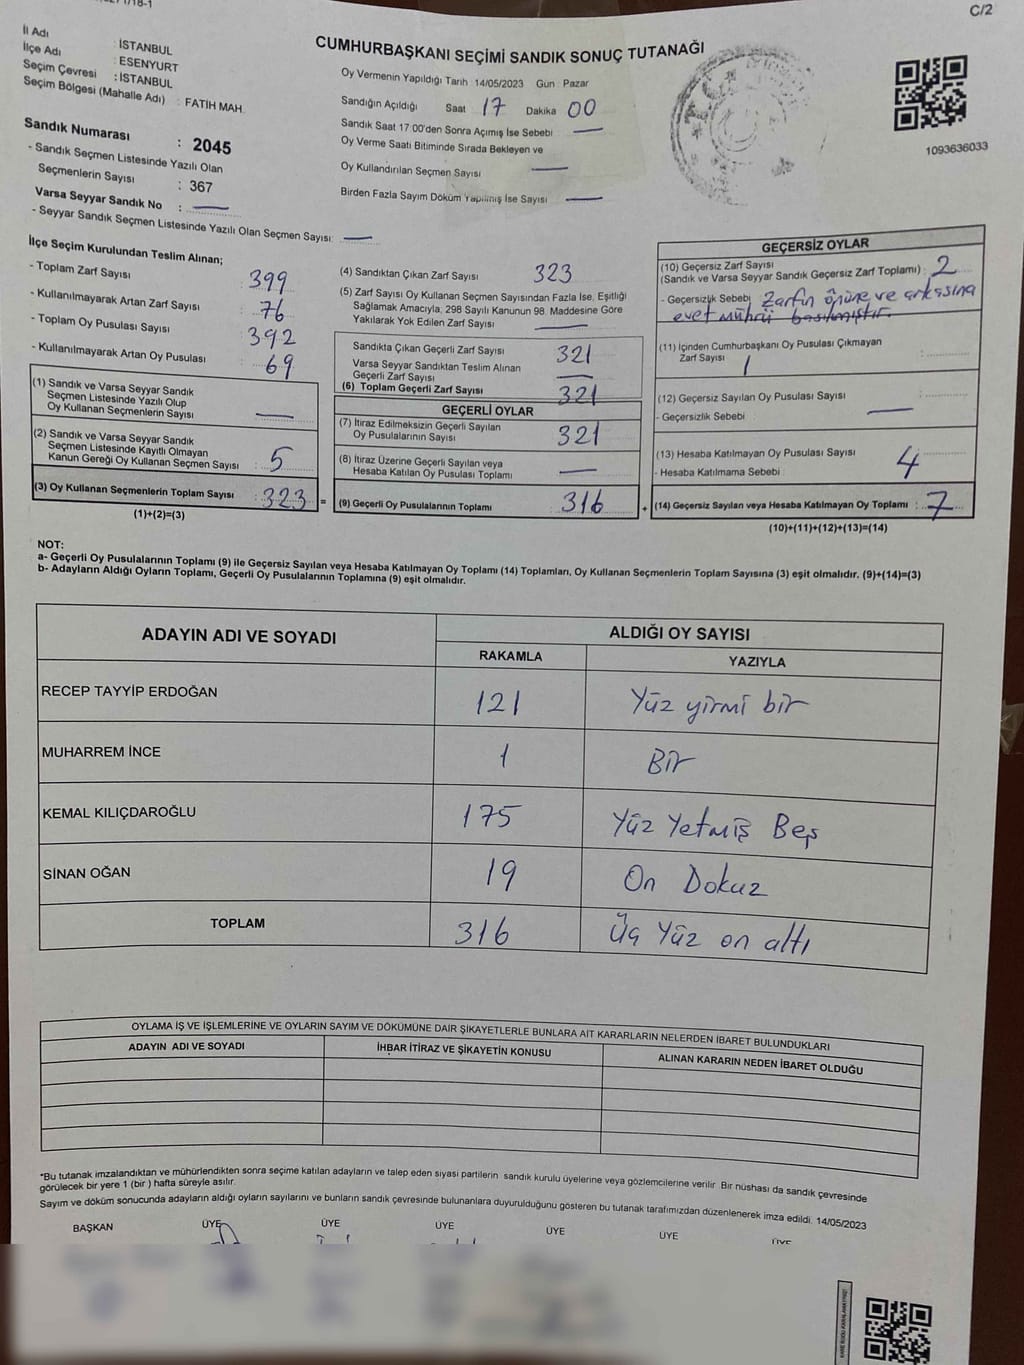 C/2
İl Adı : İSTANBUL
İlçe Adı : ESENYURT
Seçim Çevresi : İSTANBUL
Seçim Bölgesi (Mahalle Adı) : FATİH MAH.
Sandık Numarası : 2045
- Sandık Seçmen Listesinde Yazılı Olan
Seçmenlerin Sayısı : 367
Varsa Seyyar Sandık No :
- Seyyar Sandık Seçmen Listesinde Yazılı Olan Seçmen Sayısı:
CUMHURBAŞKANI SEÇİMİ SANDIK SONUÇ TUTANAĞI
Oy Vermenin Yapıldığı Tarih : 14/05/2023 Gün : Pazar
Sandığın Açıldığı Saat 17 Dakika 00
Sandık Saat 17:00'den Sonra Açımış İse Sebebi
Oy Verme Saati Bitiminde Sırada Bekleyen ve
Oy Kullandırılan Seçmen Sayısı
Birden Fazla Sayım Döküm Yapılmış İse Sayısı
1093636033
İlçe Seçim Kurulundan Teslim Alınan;
- Toplam Zarf Sayısı 399
- Kullanılmayarak Artan Zarf Sayısı : 76
- Toplam Oy Pusulası Sayısı 392
- Kullanılmayarak Artan Oy Pusulası : 69
(1) Sandık ve Varsa Seyyar Sandık
Seçmen Listesinde Yazılı Olup
Oy Kullanan Seçmenlerin Sayısı :
(2) Sandık ve Varsa Seyyar Sandık
Seçmen Listesinde Kayıtlı Olmayan
Kanun Gereği Oy Kullanan Seçmen Sayısı : 5
(3) Oy Kullanan Seçmenlerin Toplam Sayısı : 323 =
(1)+(2)=(3)
(4) Sandıktan Çıkan Zarf Sayısı 323
(5) Zarf Sayısı Oy Kullanan Seçmen Sayısından Fazla İse, Eşitliği
Sağlamak Amacıyla, 298 Sayılı Kanunun 98. Maddesine Göre
Yakılarak Yok Edilen Zarf Sayısı
Sandıkta Çıkan Geçerli Zarf Sayısı 321
Varsa Seyyar Sandıktan Teslim Alınan
Geçerli Zarf Sayısı
(6) Toplam Geçerli Zarf Sayısı 321
GEÇERLİ OYLAR
(7) İtiraz Edilmeksizin Geçerli Sayılan
Oy Pusulalarının Sayısı 321
(8) İtiraz Üzerine Geçerli Sayılan veya
Hesaba Katılan Oy Pusulası Toplamı
(9) Geçerli Oy Pusulalarının Toplamı 316 +
GEÇERSİZ OYLAR
(10) Geçersiz Zarf Sayısı
(Sandık ve Varsa Seyyar Sandık Geçersiz Zarf Toplamı) : 2
- Geçersizlik Sebebi : Zarfın önüne ve arkasına
evet mührü basılmıştır.
(11) İçinden Cumhurbaşkanı Oy Pusulası Çıkmayan
Zarf Sayısı 1
(12) Geçersiz Sayılan Oy Pusulası Sayısı
- Geçersizlik Sebebi
(13) Hesaba Katılmayan Oy Pusulası Sayısı : 4
- Hesaba Katılmama Sebebi
(14) Geçersiz Sayılan veya Hesaba Katılmayan Oy Toplamı : 7
(10)+(11)+(12)+(13)=(14)
NOT:
a- Geçerli Oy Pusulalarının Toplamı (9) ile Geçersiz Sayılan veya Hesaba Katılmayan Oy Toplamı (14) Toplamları, Oy Kullanan Seçmenlerin Toplam Sayısına (3) eşit olmalıdır. (9)+(14)=(3)
b- Adayların Aldığı Oyların Toplamı, Geçerli Oy Pusulalarının Toplamına (9) eşit olmalıdır.
ADAYIN ADI VE SOYADI ALDIĞI OY SAYISI
RAKAMLA YAZIYLA
RECEP TAYYİP ERDOĞAN 121 Yüz yirmi bir
MUHARREM İNCE 1 Bir
KEMAL KILIÇDAROĞLU 175 Yüz Yetmiş Beş
SİNAN OĞAN 19 On Dokuz
TOPLAM 316 Üç Yüz on altı
OYLAMA İŞ VE İŞLEMLERİNE VE OYLARIN SAYIM VE DÖKÜMÜNE DAİR ŞİKAYETLERLE BUNLARA AİT KARARLARIN NELERDEN İBARET BULUNDUKLARI
ADAYIN ADI VE SOYADI İHBAR İTİRAZ VE ŞİKAYETİN KONUSU ALINAN KARARIN NEDEN İBARET OLDUĞU
*Bu tutanak imzalandıktan ve mühürlendikten sonra seçime katılan adayların ve talep eden siyasi partilerin sandık kurulu üyelerine veya gözlemcilerine verilir. Bir nüshası da sandık çevresinde
görülecek bir yere 1 (bir ) hafta süreyle asılır.
Sayım ve döküm sonucunda adayların aldığı oyların sayılarını ve bunların sandık çevresinde bulunanlara duyurulduğunu gösteren bu tutanak tarafımızdan düzenlenerek imza edildi. 14/05/2023
BAŞKAN ÜYE ÜYE ÜYE ÜYE ÜYE ÜYE